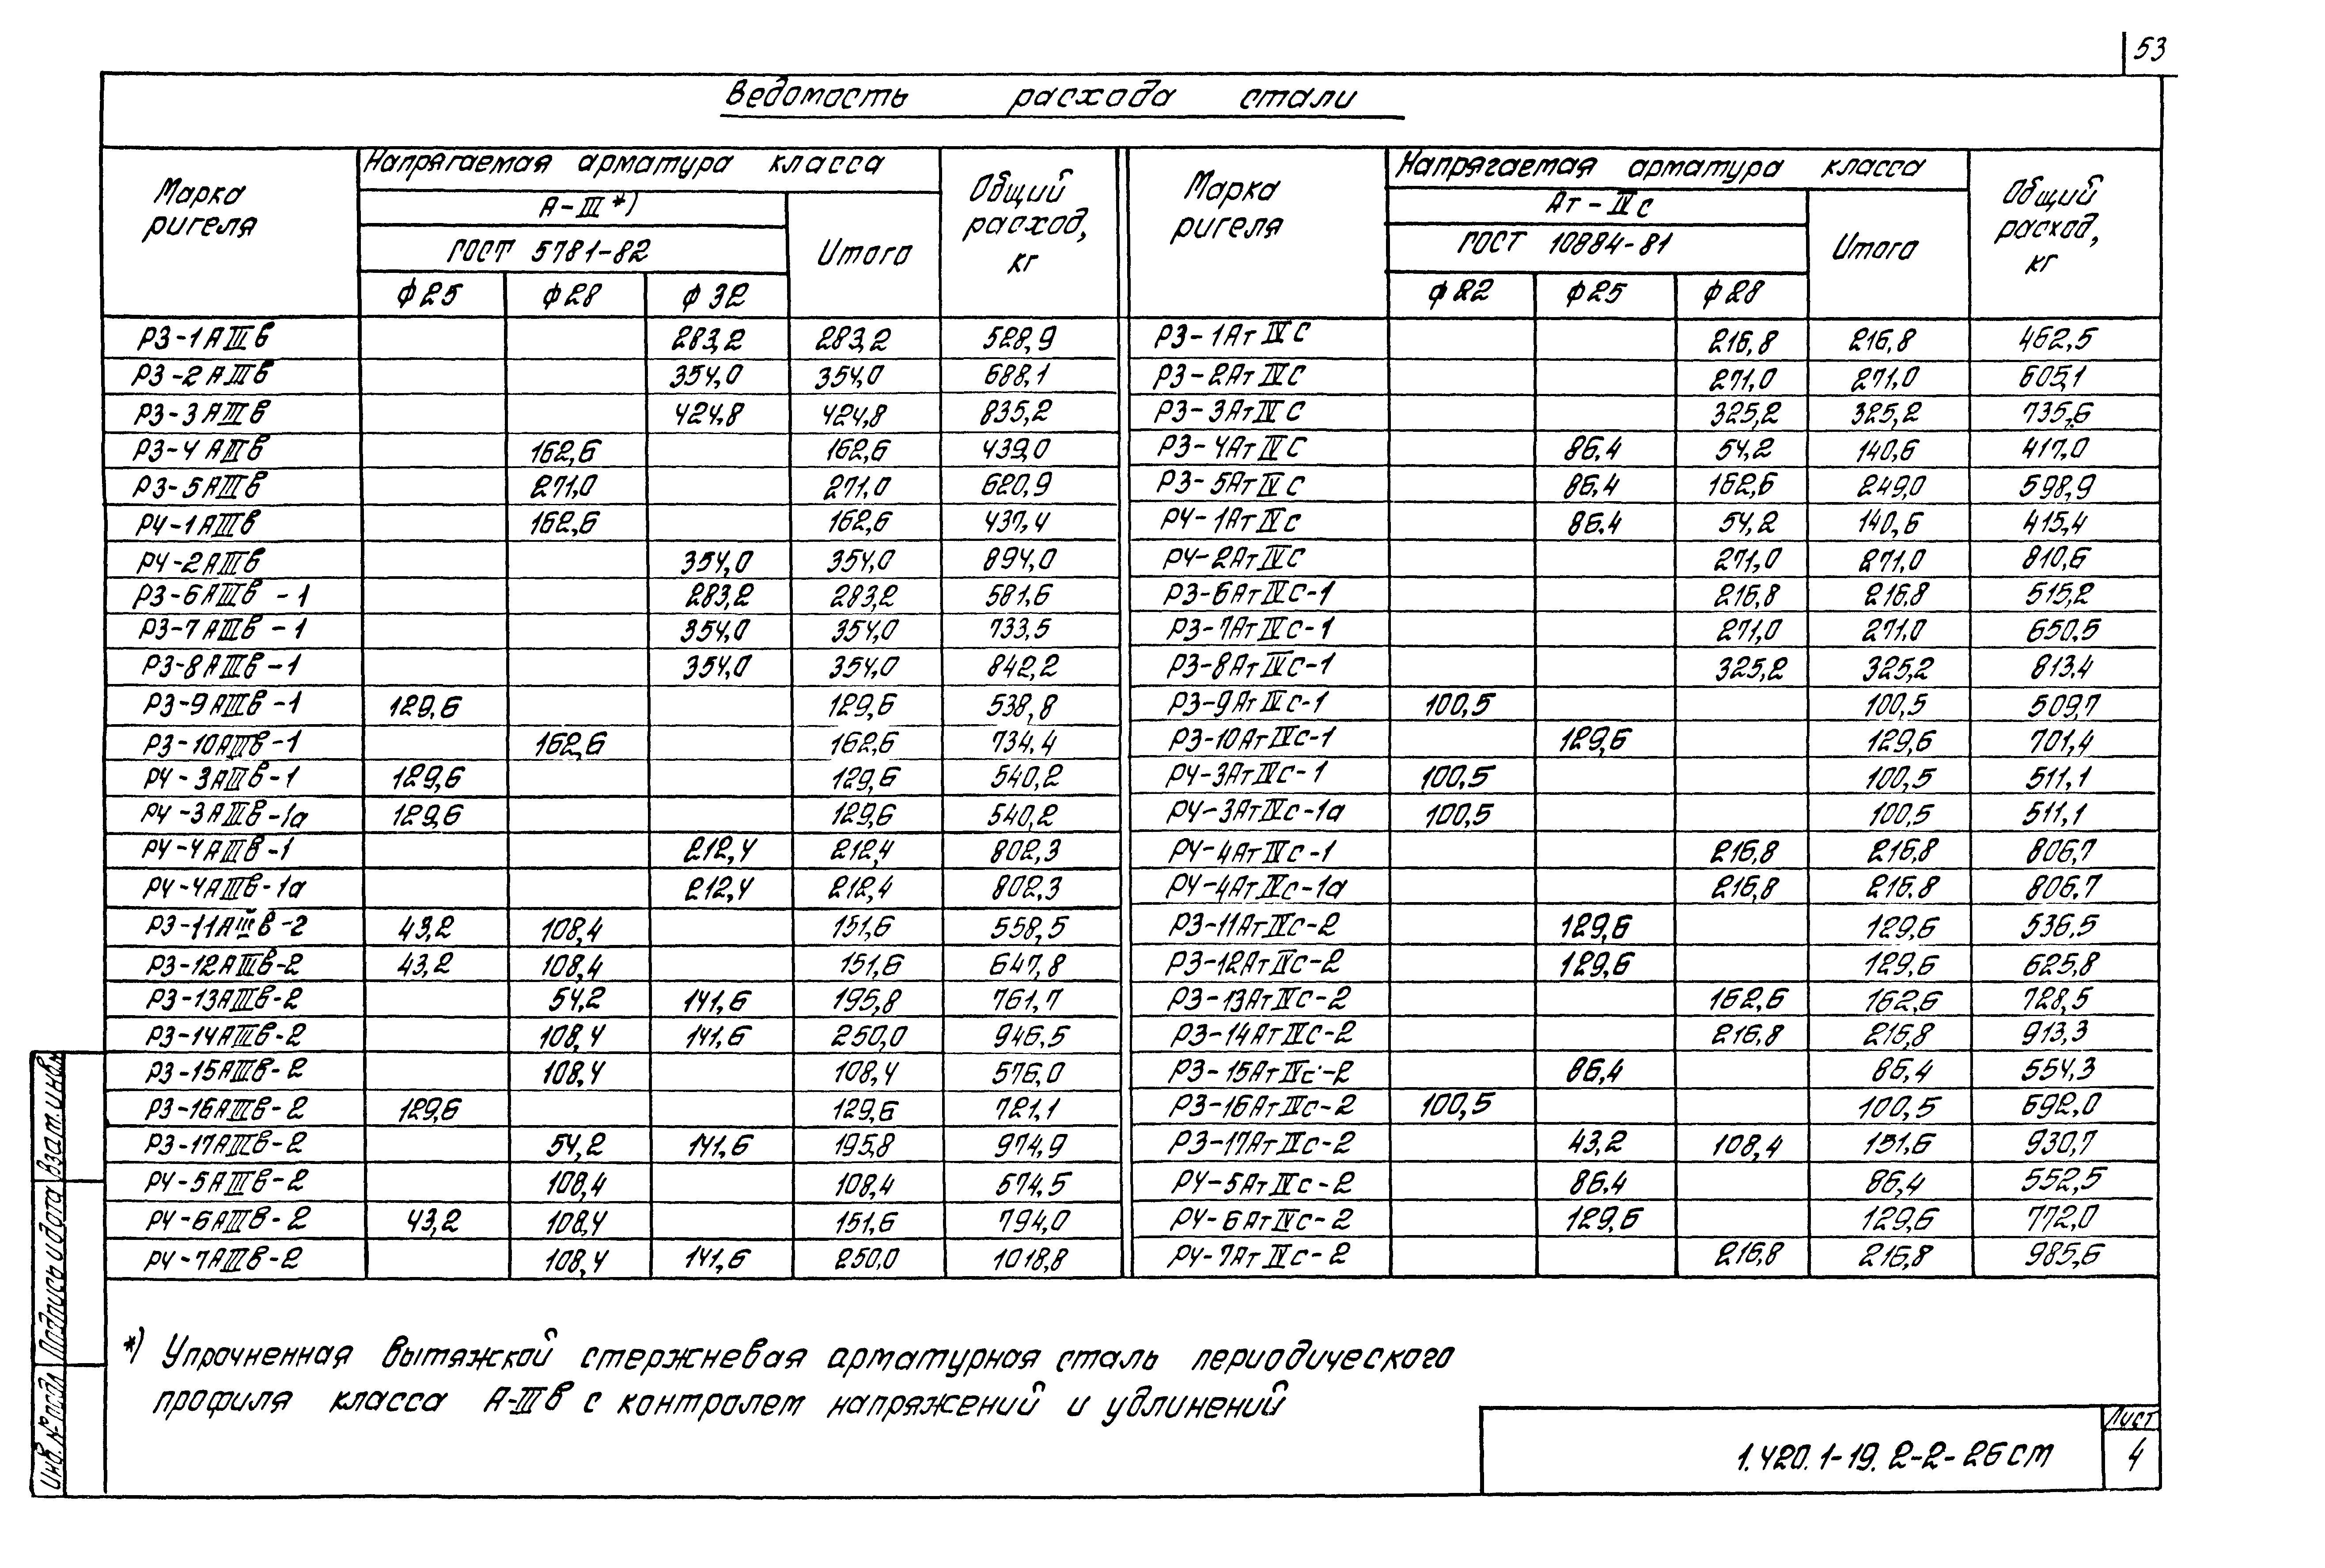 53
Ведомость расхода стали
Марка ригеля | Напрягаемая арматура класса | Общий расход, кг | Марка ригеля | Напрягаемая арматура класса | Общий расход, кг
А-III *) | Итого | Ат-IVС | Итого
ГОСТ 5781-82 | ГОСТ 10884-81
ф25 | ф28 | ф32 | ф22 | ф25 | ф28
Р3-1АIIIв | | | 283,2 | 283,2 | 528,9 | Р3-1АтIVС | | | 216,8 | 216,8 | 462,5
Р3-2АIIIв | | | 354,0 | 354,0 | 688,1 | Р3-2АтIVС | | | 271,0 | 271,0 | 605,1
Р3-3АIIIв | | | 424,8 | 424,8 | 835,2 | Р3-3АтIVС | | | 325,2 | 325,2 | 735,6
Р3-4АIIIв | | 162,6 | | 162,6 | 439,0 | Р3-4АтIVС | | 86,4 | 54,2 | 140,6 | 417,0
Р3-5АIIIв | | 271,0 | | 271,0 | 620,9 | Р3-5АтIVС | | 86,4 | 162,6 | 249,0 | 598,9
Р4-1АIIIв | | 162,6 | | 162,6 | 437,4 | Р4-1АтIVС | | 86,4 | 54,2 | 140,6 | 415,4
Р4-2АIIIв | | | 354,0 | 354,0 | 894,0 | Р4-2АтIVС | | | 271,0 | 271,0 | 810,6
Р3-6АIIIв-1 | | | 283,2 | 283,2 | 581,6 | Р3-6АтIVС-1 | | | 216,8 | 216,8 | 515,2
Р3-7АIIIв-1 | | | 354,0 | 354,0 | 733,5 | Р3-7АтIVС-1 | | | 271,0 | 271,0 | 650,5
Р3-8АIIIв-1 | | | 354,0 | 354,0 | 842,2 | Р3-8АтIVС-1 | | | 325,2 | 325,2 | 813,4
Р3-9АIIIв-1 | 129,6 | | | 129,6 | 538,8 | Р3-9АтIVС-1 | 100,5 | | | 100,5 | 509,7
Р3-10АIIIв-1 | | 162,6 | | 162,6 | 734,4 | Р3-10АтIVС-1 | | 129,6 | | 129,6 | 701,4
Р4-3АIIIв-1 | 129,6 | | | 129,6 | 540,2 | Р4-3АтIVС-1 | 100,5 | | | 100,5 | 511,1
Р4-3АIIIв-1а | 129,6 | | | 129,6 | 540,2 | Р4-3АтIVС-1а | 100,5 | | | 100,5 | 511,1
Р4-4АIIIв-1 | | | 212,4 | 212,4 | 802,3 | Р4-4АтIVС-1 | | | 216,8 | 216,8 | 806,7
Р4-4АIIIв-1а | | | 212,4 | 212,4 | 802,3 | Р4-4АтIVС-1а | | | 216,8 | 216,8 | 806,7
Р3-11АIIIв-2 | 43,2 | 108,4 | | 151,6 | 558,5 | Р3-11АтIVС-2 | | 129,6 | | 129,6 | 536,5
Р3-12АIIIв-2 | 43,2 | 108,4 | | 151,6 | 647,8 | Р3-12АтIVС-2 | | 129,6 | | 129,6 | 625,8
Р3-13АIIIв-2 | | 54,2 | 141,6 | 195,8 | 761,7 | Р3-13АтIVС-2 | | | 162,6 | 162,6 | 728,5
Р3-14АIIIв-2 | | 108,4 | 141,6 | 250,0 | 946,5 | Р3-14АтIVС-2 | | | 216,8 | 216,8 | 913,3
Р3-15АIIIв-2 | | 108,4 | | 108,4 | 576,0 | Р3-15АтIVС-2 | | 86,4 | | 86,4 | 554,3
Р3-16АIIIв-2 | 129,6 | | | 129,6 | 721,1 | Р3-16АтIVС-2 | 100,5 | | | 100,5 | 692,0
Р3-17АIIIв-2 | | 54,2 | 141,6 | 195,8 | 974,9 | Р3-17АтIVС-2 | | 43,2 | 108,4 | 151,6 | 930,7
Р4-5АIIIв-2 | | 108,4 | | 108,4 | 574,5 | Р4-5АтIVС-2 | | 86,4 | | 86,4 | 552,5
Р4-6АIIIв-2 | 43,2 | 108,4 | | 151,6 | 794,0 | Р4-6АтIVС-2 | | 129,6 | | 129,6 | 772,0
Р4-7АIIIв-2 | | 108,4 | 141,6 | 250,0 | 1018,8 | Р4-7АтIVС-2 | | | 216,8 | 216,8 | 985,6
*) Упрочненная вытяжкой стержневая арматурная сталь периодического
профиля класса А-IIIв с контролем напряжений и удлинений
1.420.1-19.2-2-26СМ
Лист
4
Инв. № подл
Подпись и дата
Взам. инв.№